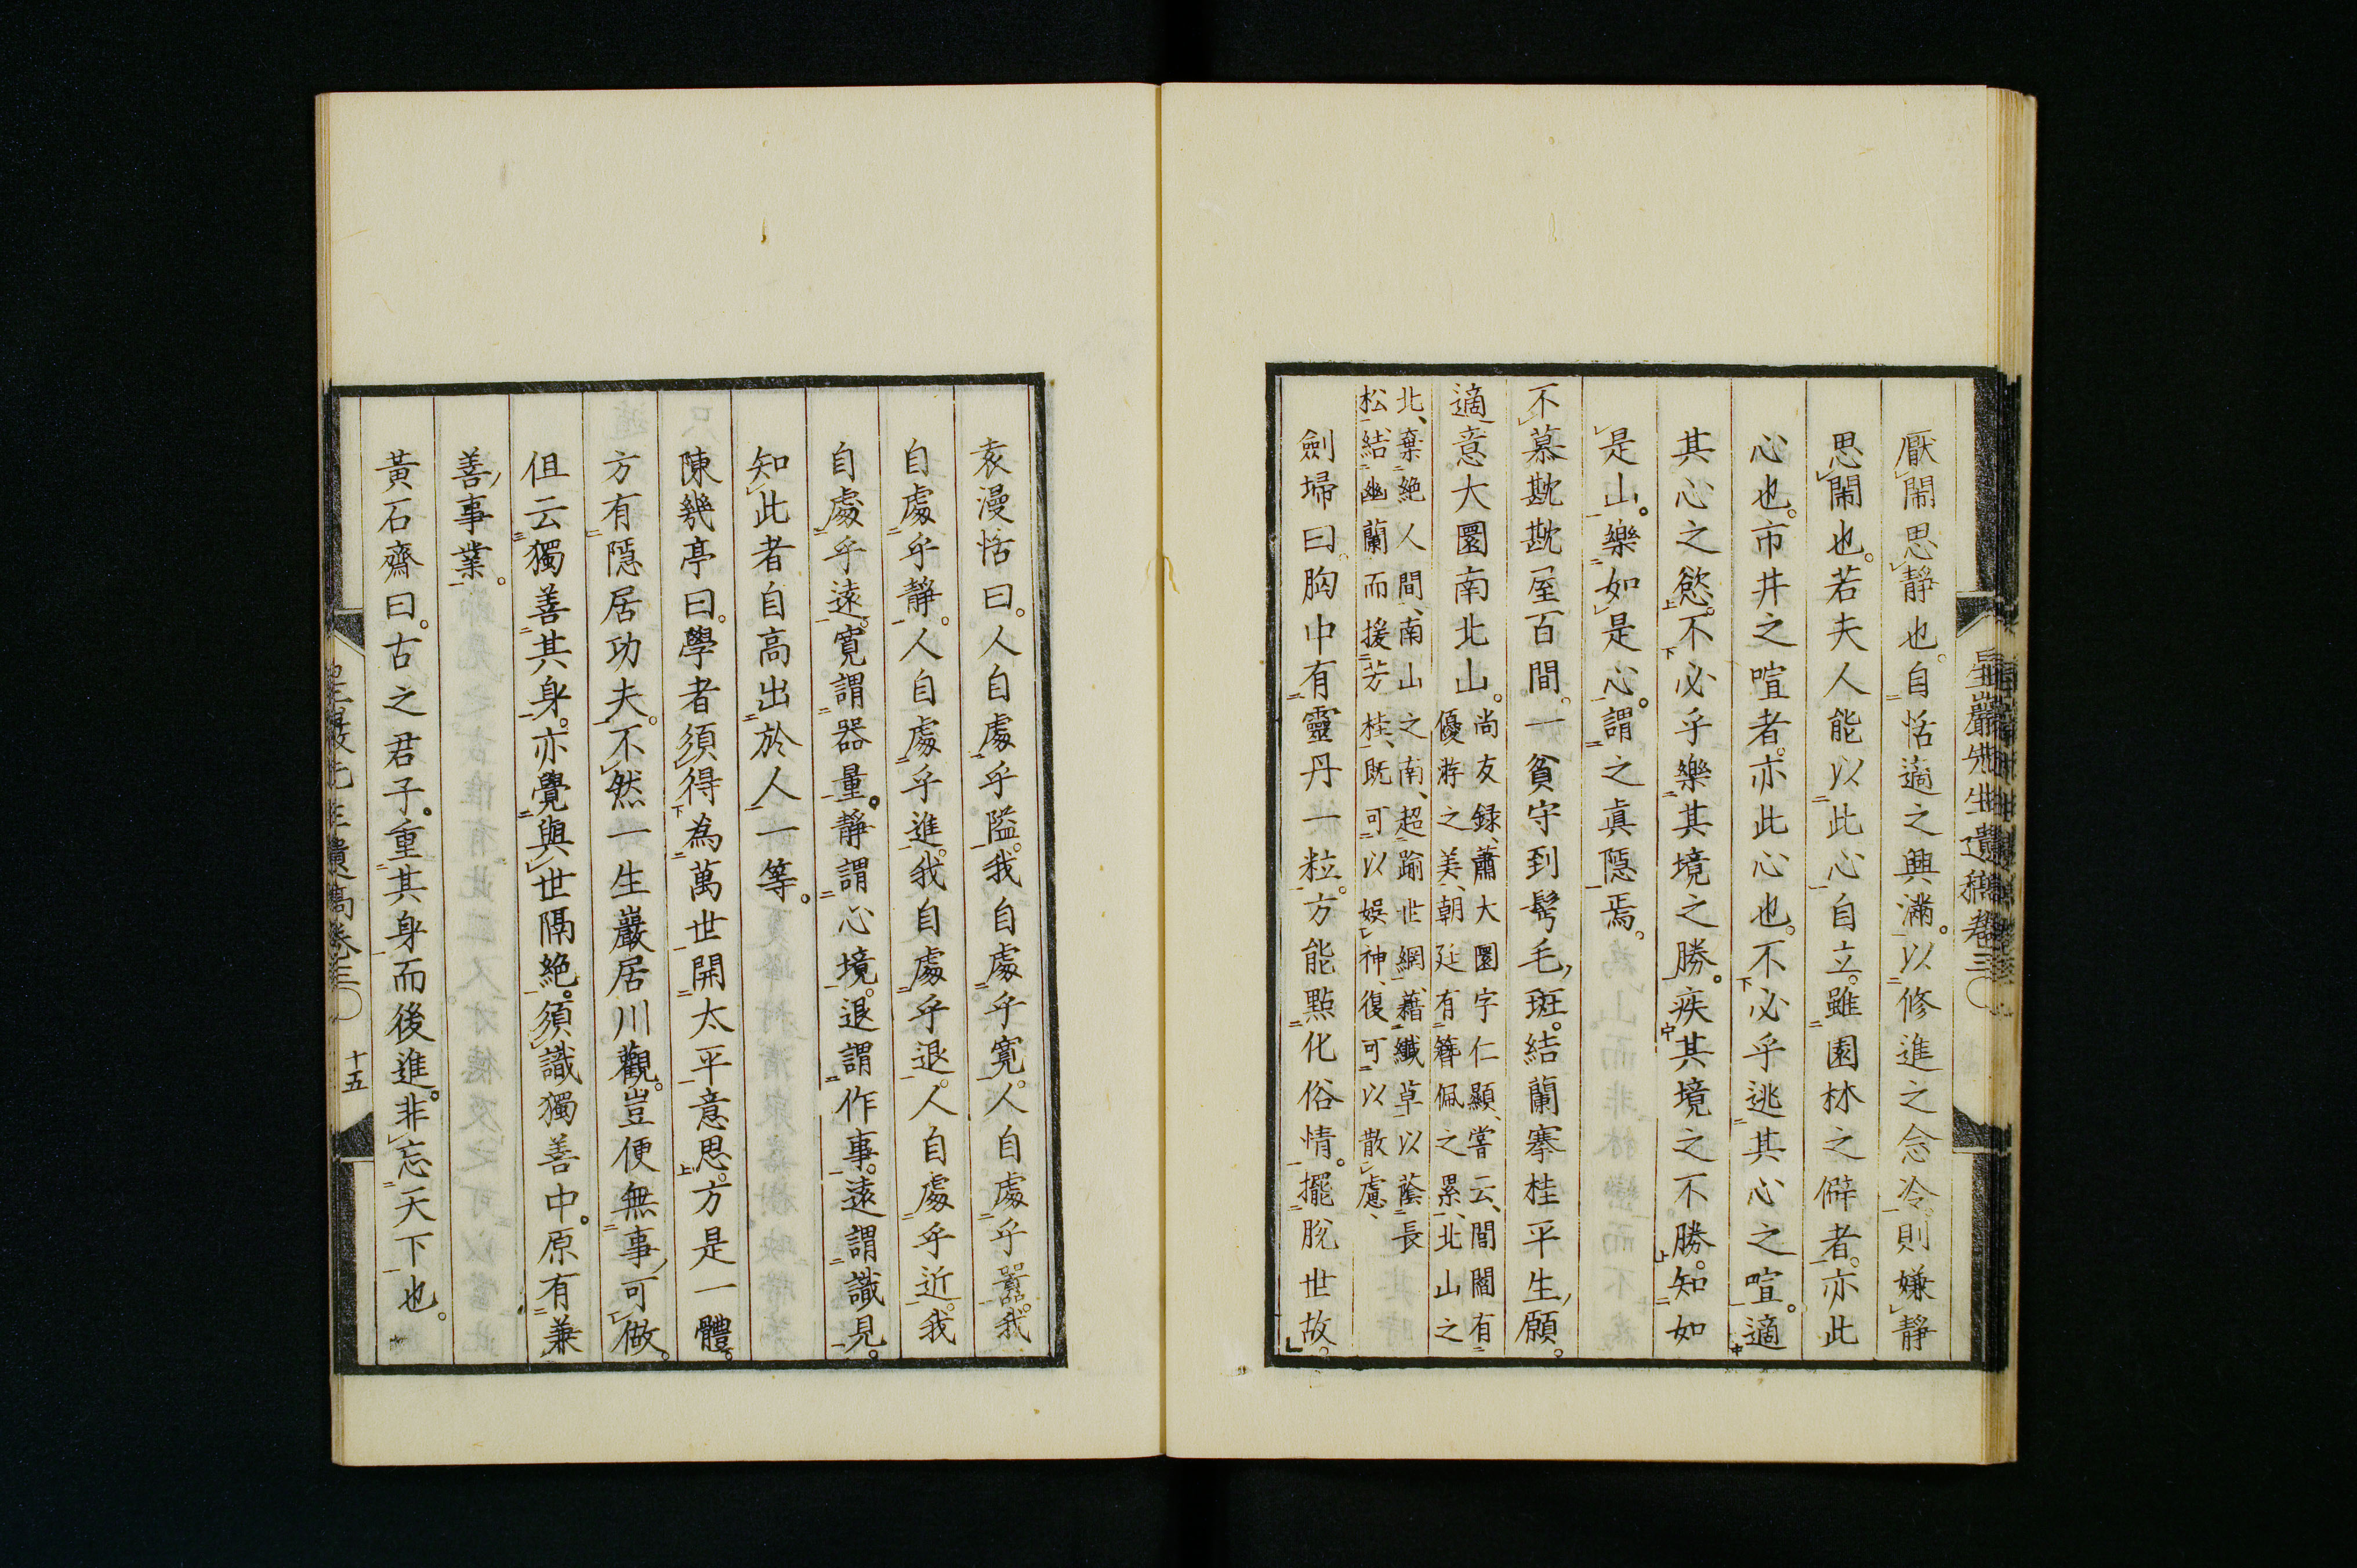 厭閙思靜也。自恬適之興滿。以修進之念冷。則嫌靜
思閙也。若夫人能以此心自立。雖園林之僻者。亦此
心也。市井之喧者。亦此心也。不必乎逃其心之喧。適
其心之慾。不必乎樂其境之勝。疾其境之不勝。知如
是山。樂如是心。謂之真隱焉。
不慕歁歁屋百間。一貧守到鬂毛斑。結蘭搴桂平生願。
適意大圜南北山。尚友録、蕭大圜字仁顯、嘗云、閭閻有
優游之美、朝廷有簪佩之累、北山之
北、棄絶人間、南山之南、超踰世網、藉纎草以蔭長
松、結幽蘭而援芳桂、既可以娯神、復可以散慮、
劍埽曰。胸中有靈丹一粒。方能點化俗情。擺脫世故。
星巖先生遺稿卷三
袁漫恬曰。人自處乎隘。我自處乎寛。人自處乎囂。我
自處乎靜。人自處乎進。我自處乎退。人自處乎近。我
自處乎遠。寛謂器量。靜謂心境。退謂作事。遠謂識見。
知此者自高出於人一等。
陳幾亭曰。學者須得為萬世開太平意思。方是一體。
方有隱居功夫。不然一生巖居川觀。豈便無事可做。
但云獨善其身。亦覺與世隔絶。須識獨善中。原有兼
善事業。
黃石齋曰。古之君子。重其身而後進。非忘天下也。
星巖先生遺稿卷三
十五